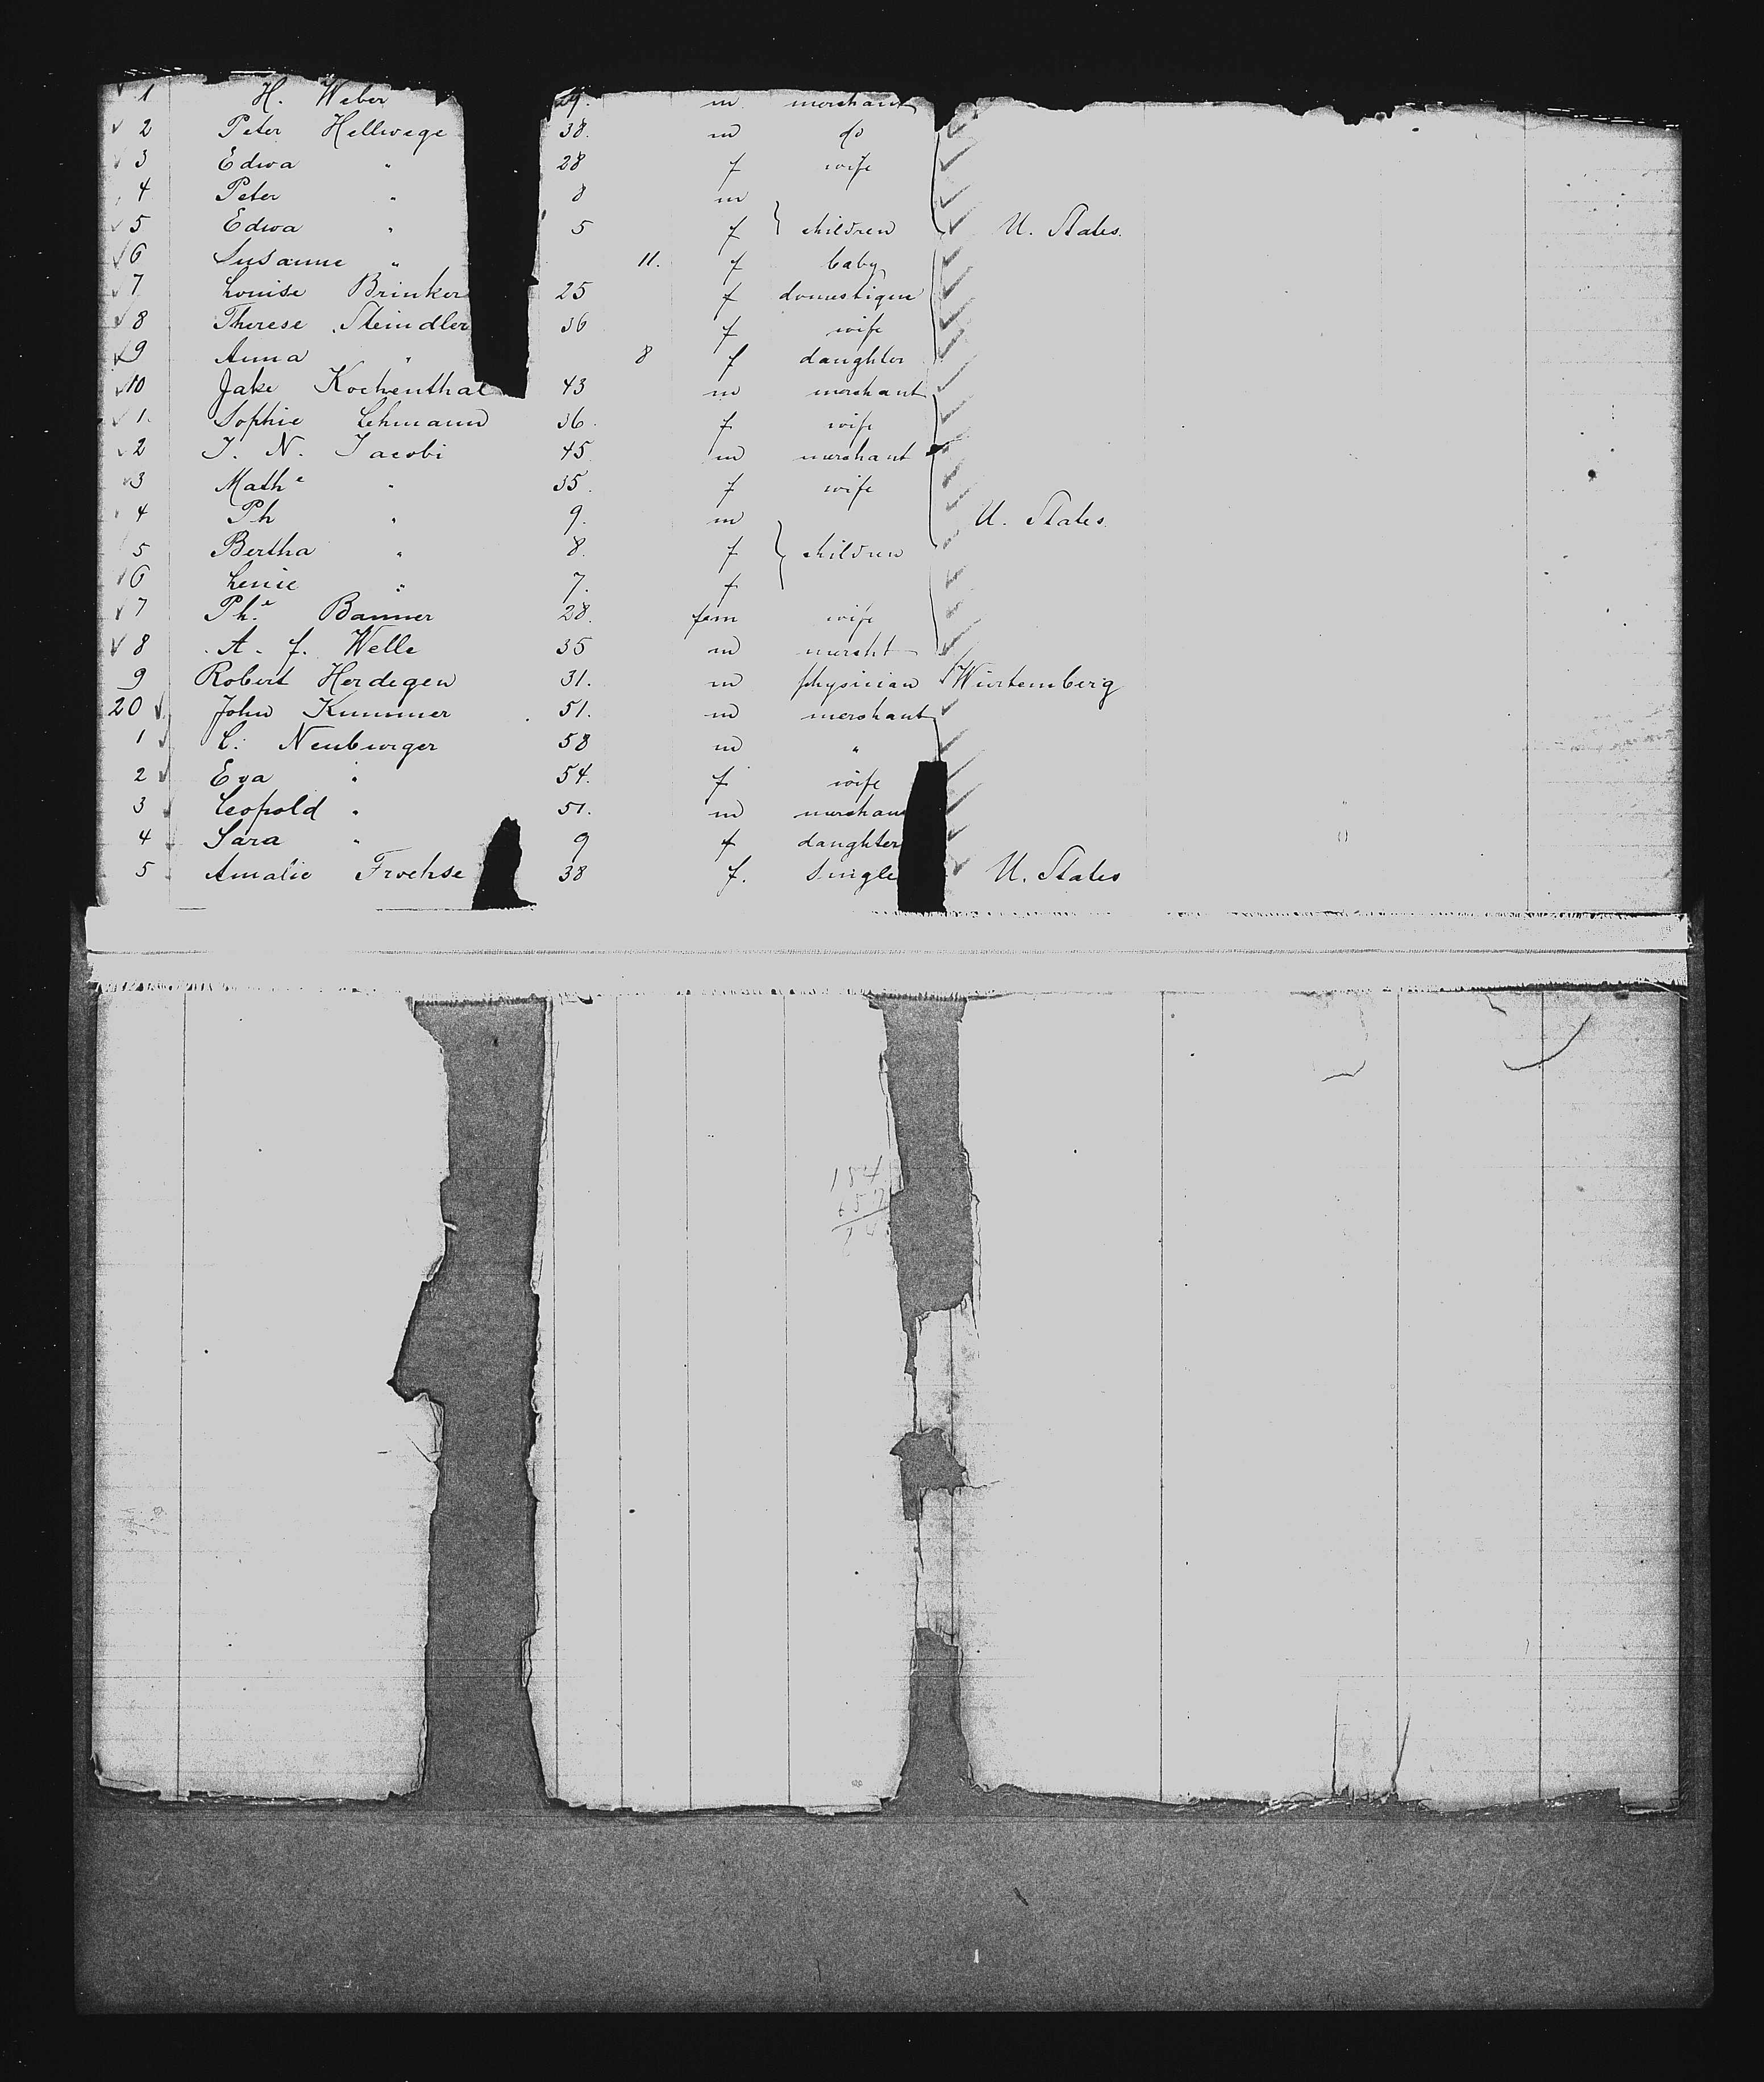 1 H. Weber 29. m merchant
2 Peter Hellwege 38. m do
3 Edwa " 28 f wife
4 Peter " 8 m
5 Edwa " 5 f } children U. States.
6 Susanne " 11. f baby
7 Louise Brinker 25 f domestique
8 Therese Steindler 36 f wife
9 Anna " 8 f daughter
10 Jake Kochenthal 43 m merchant
1. Sophie Lehmann 36. f wife
2 J. N. Jacobi 45 m merchant
3 Mathe " 35. f wife
4 Ph " 9. m U. States.
5 Bertha " 8. f } children
6 Lenie " 7. f
7 Phe. Banner 28. fem wife
8 A. f. Welle 35 m mercht
9 Robert Herdegen 31. m physician Würtemberg
20 John Kummer 51. m merchant
1 L. Neuburger 58 m "
2 Eva " 54. f wife
3 Leopold " 51. m merchan
4 Sara " 9 f daughter
5 Amalie Froehse 38 f. Single U. States
184